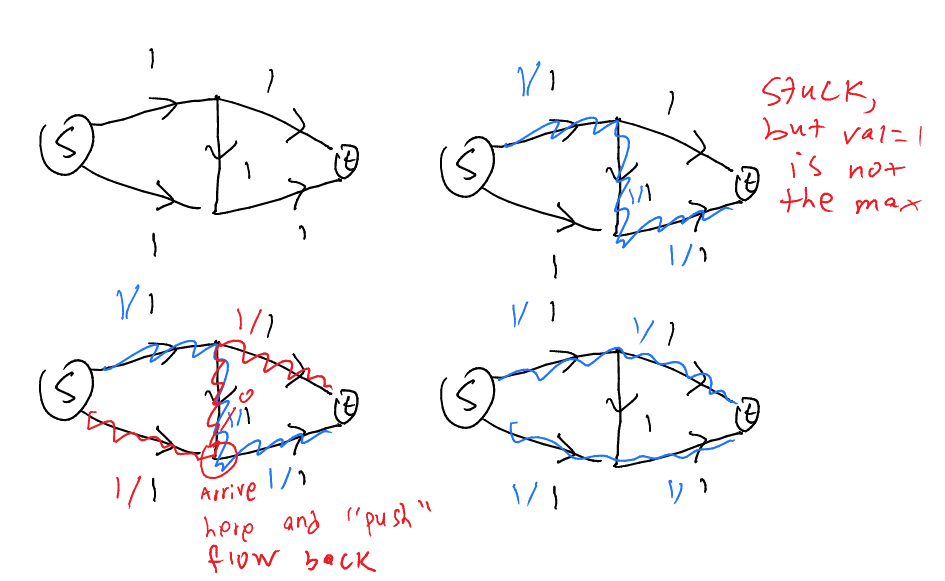 1
1
S
t
1
1
1
1/1
1
S
t
1/1
1/1
1
stuck,
but val=1
is not
the max
1/1
1/1
S
t
0
1/1
1/1
1/1
Arrive
here and "push"
flow back
1/1
1/1
S
t
1
1/1
1/1